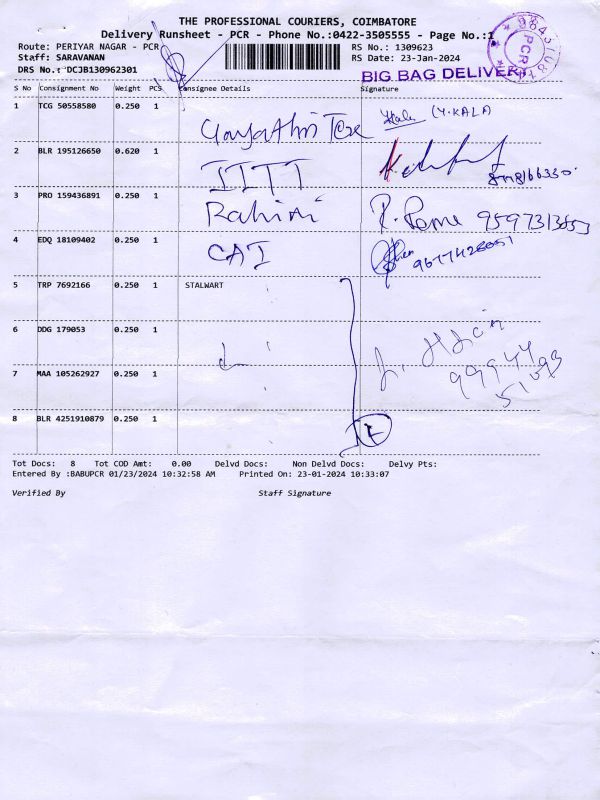 THE PROFESSIONAL COURIERS, COIMBATORE
Delivery Runsheet - PCR - Phone No.:0422-3505555 - Page No.:1
Route: PERIYAR NAGAR - PCR
RS No.: 1309623
Staff: SARAVANAN
RS Date: 23-Jan-2024
DRS No.: DCJB130962301
BIG BAG DELIVERY
PCR
S No Consignment No Weight PCS Consignee Details Signature
1 TCG 50558580 0.250 1
Gayathri Tex (Y.KALA)
2 BLR 195126650 0.620 1
IITI
3 PRO 159436891 0.250 1
Rahini
4 EDQ 18109402 0.250 1
CAI 9677428051
5 TRP 7692166 0.250 1 STALWART
6 DDG 179053 0.250 1
7 MAA 105262927 0.250 1
99944
8 BLR 4251910879 0.250 1
Tot Docs: 8 Tot COD Amt: 0.00 Delvd Docs: Non Delvd Docs: Delvy Pts:
Entered By :BABUPCR 01/23/2024 10:32:58 AM Printed On: 23-01-2024 10:33:07
Verified By Staff Signature